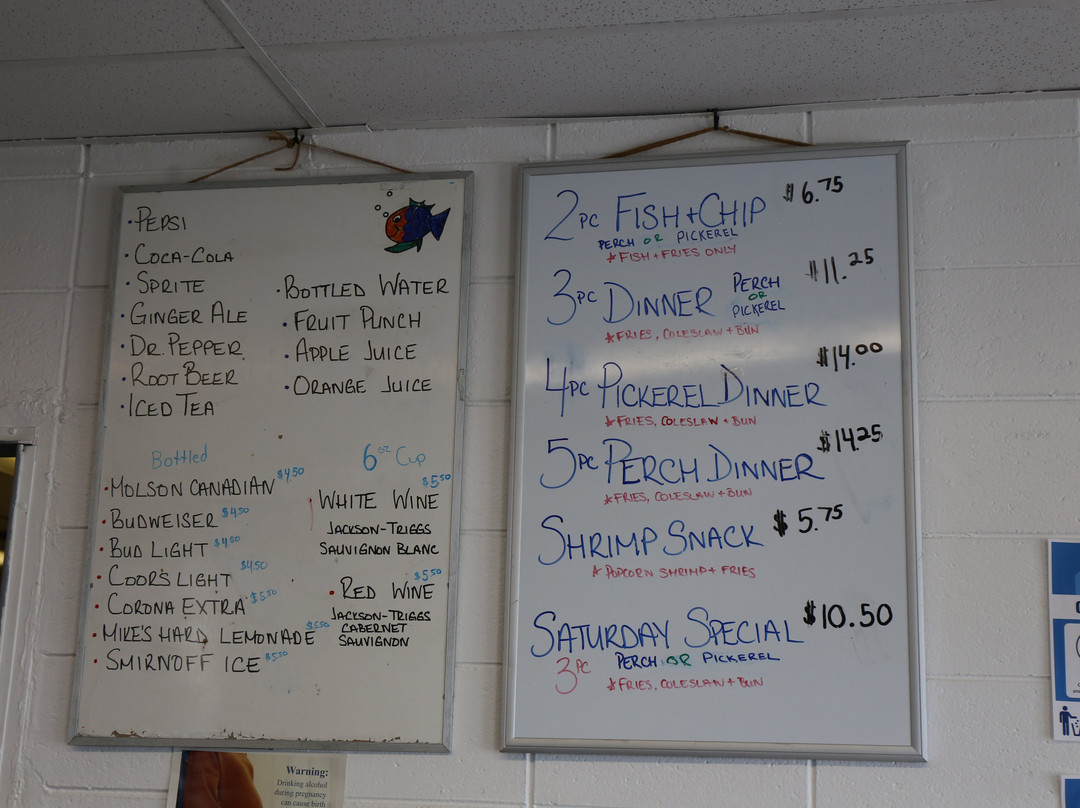 • PEPSI
• COCA-COLA
• SPRITE
• GINGER ALE
• DR. PEPPER
• ROOT BEER
• ICED TEA
• BOTTLED WATER
• FRUIT PUNCH
• APPLE JUICE
• ORANGE JUICE
Bottled
• MOLSON CANADIAN $4.50
• BUDWEISER $4.50
• BUD LIGHT $4.50
• COORS LIGHT $4.50
• CORONA EXTRA $5.50
• MIKE'S HARD LEMONADE $5.50
• SMIRNOFF ICE $5.50
6 oz Cup
$5.50
WHITE WINE
JACKSON-TRIGGS
SAUVIGNON BLANC
$5.50
• RED WINE
JACKSON-TRIGGS
CABERNET
SAUVIGNON
2PC FISH + CHIP $6.75
PERCH OR PICKEREL
* FISH + FRIES ONLY
3PC DINNER PERCH OR PICKEREL $11.25
* FRIES, COLESLAW + BUN
4PC PICKEREL DINNER $14.00
* FRIES, COLESLAW + BUN
5PC PERCH DINNER $14.25
* FRIES, COLESLAW + BUN
SHRIMP SNACK $5.75
* POPCORN SHRIMP + FRIES
SATURDAY SPECIAL $10.50
3PC PERCH OR PICKEREL
* FRIES, COLESLAW + BUN
Warning:
Drinking alcohol
during pregnancy
can cause birth